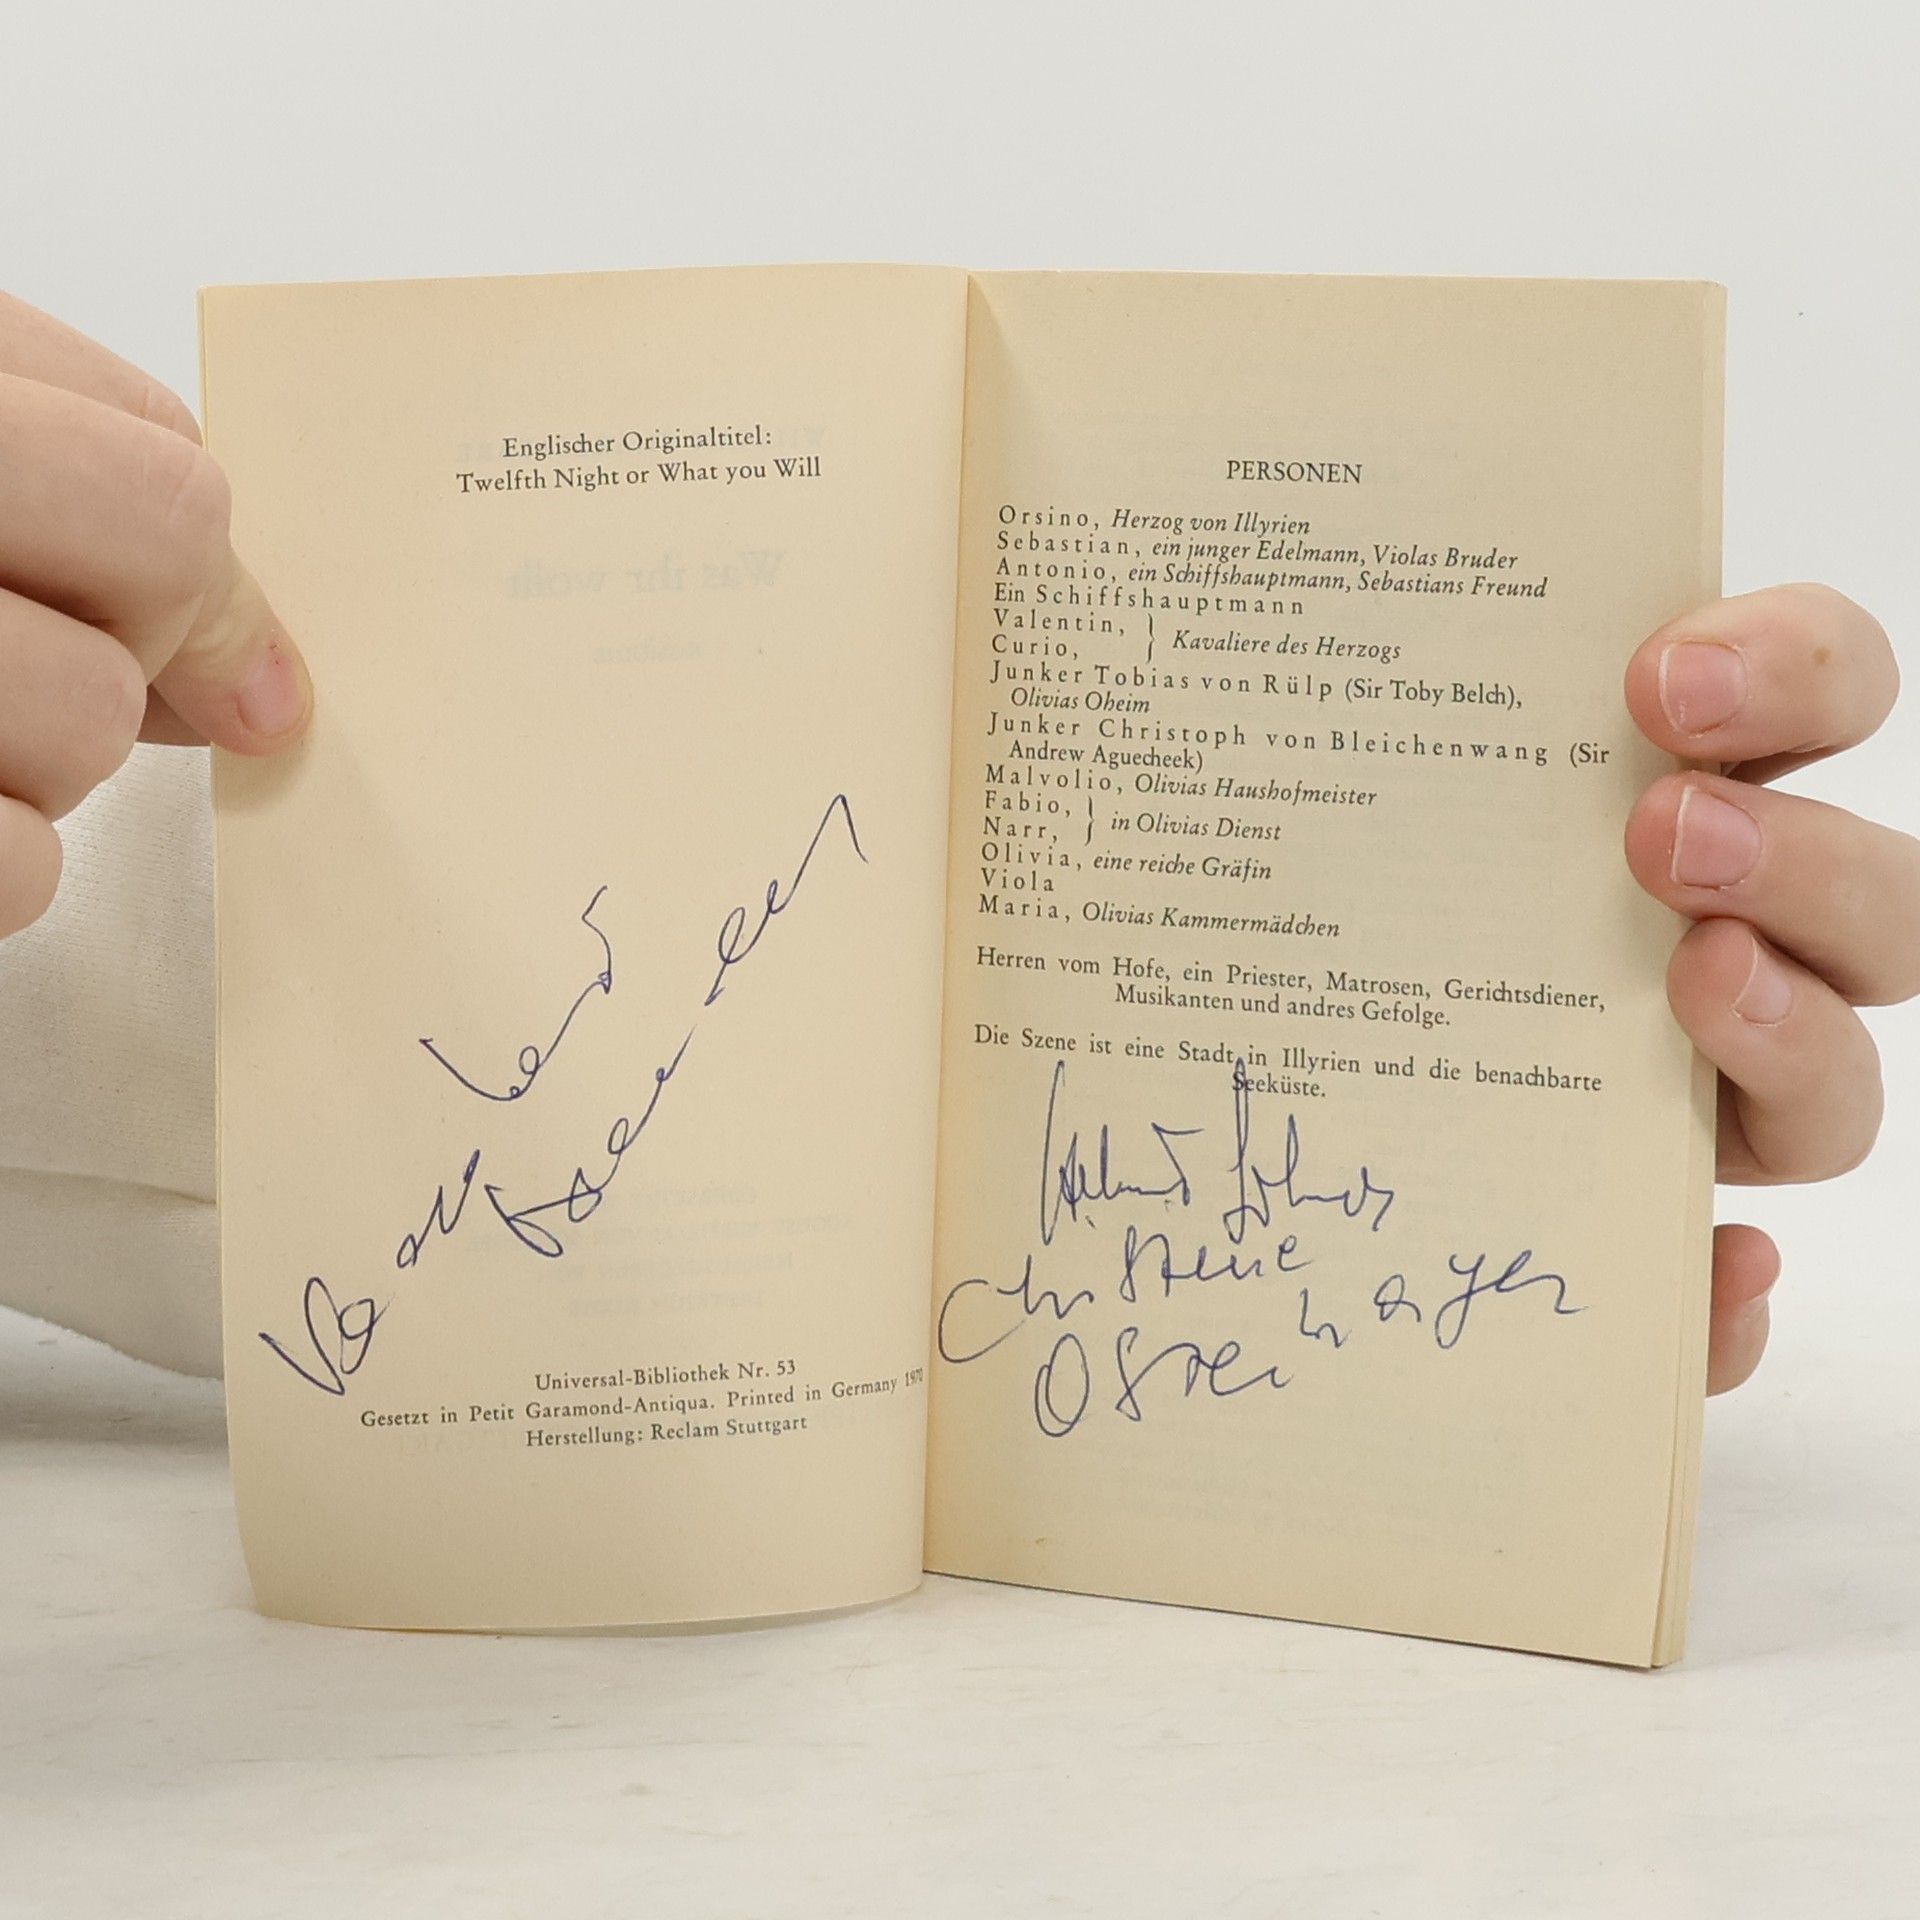 Englischer Originaltitel:
Twelfth Night or What you Will
Universal-Bibliothek Nr. 53
Gesetzt in Petit Garamond-Antiqua. Printed in Germany 1970
Herstellung: Reclam Stuttgart
PERSONEN
Orsino, Herzog von Illyrien
Sebastian, ein junger Edelmann, Violas Bruder
Antonio, ein Schiffshauptmann, Sebastians Freund
Ein Schiffshauptmann
Valentin,
Curio, } Kavaliere des Herzogs
Junker Tobias von Rülp (Sir Toby Belch),
Olivias Oheim
Junker Christoph von Bleichenwang (Sir
Andrew Aguecheek)
Malvolio, Olivias Haushofmeister
Fabio,
Narr, } in Olivias Dienst
Olivia, eine reiche Gräfin
Viola
Maria, Olivias Kammermädchen
Herren vom Hofe, ein Priester, Matrosen, Gerichtsdiener,
Musikanten und andres Gefolge.
Die Szene ist eine Stadt in Illyrien und die benachbarte
Seeküste.
Christine
Ostermayer